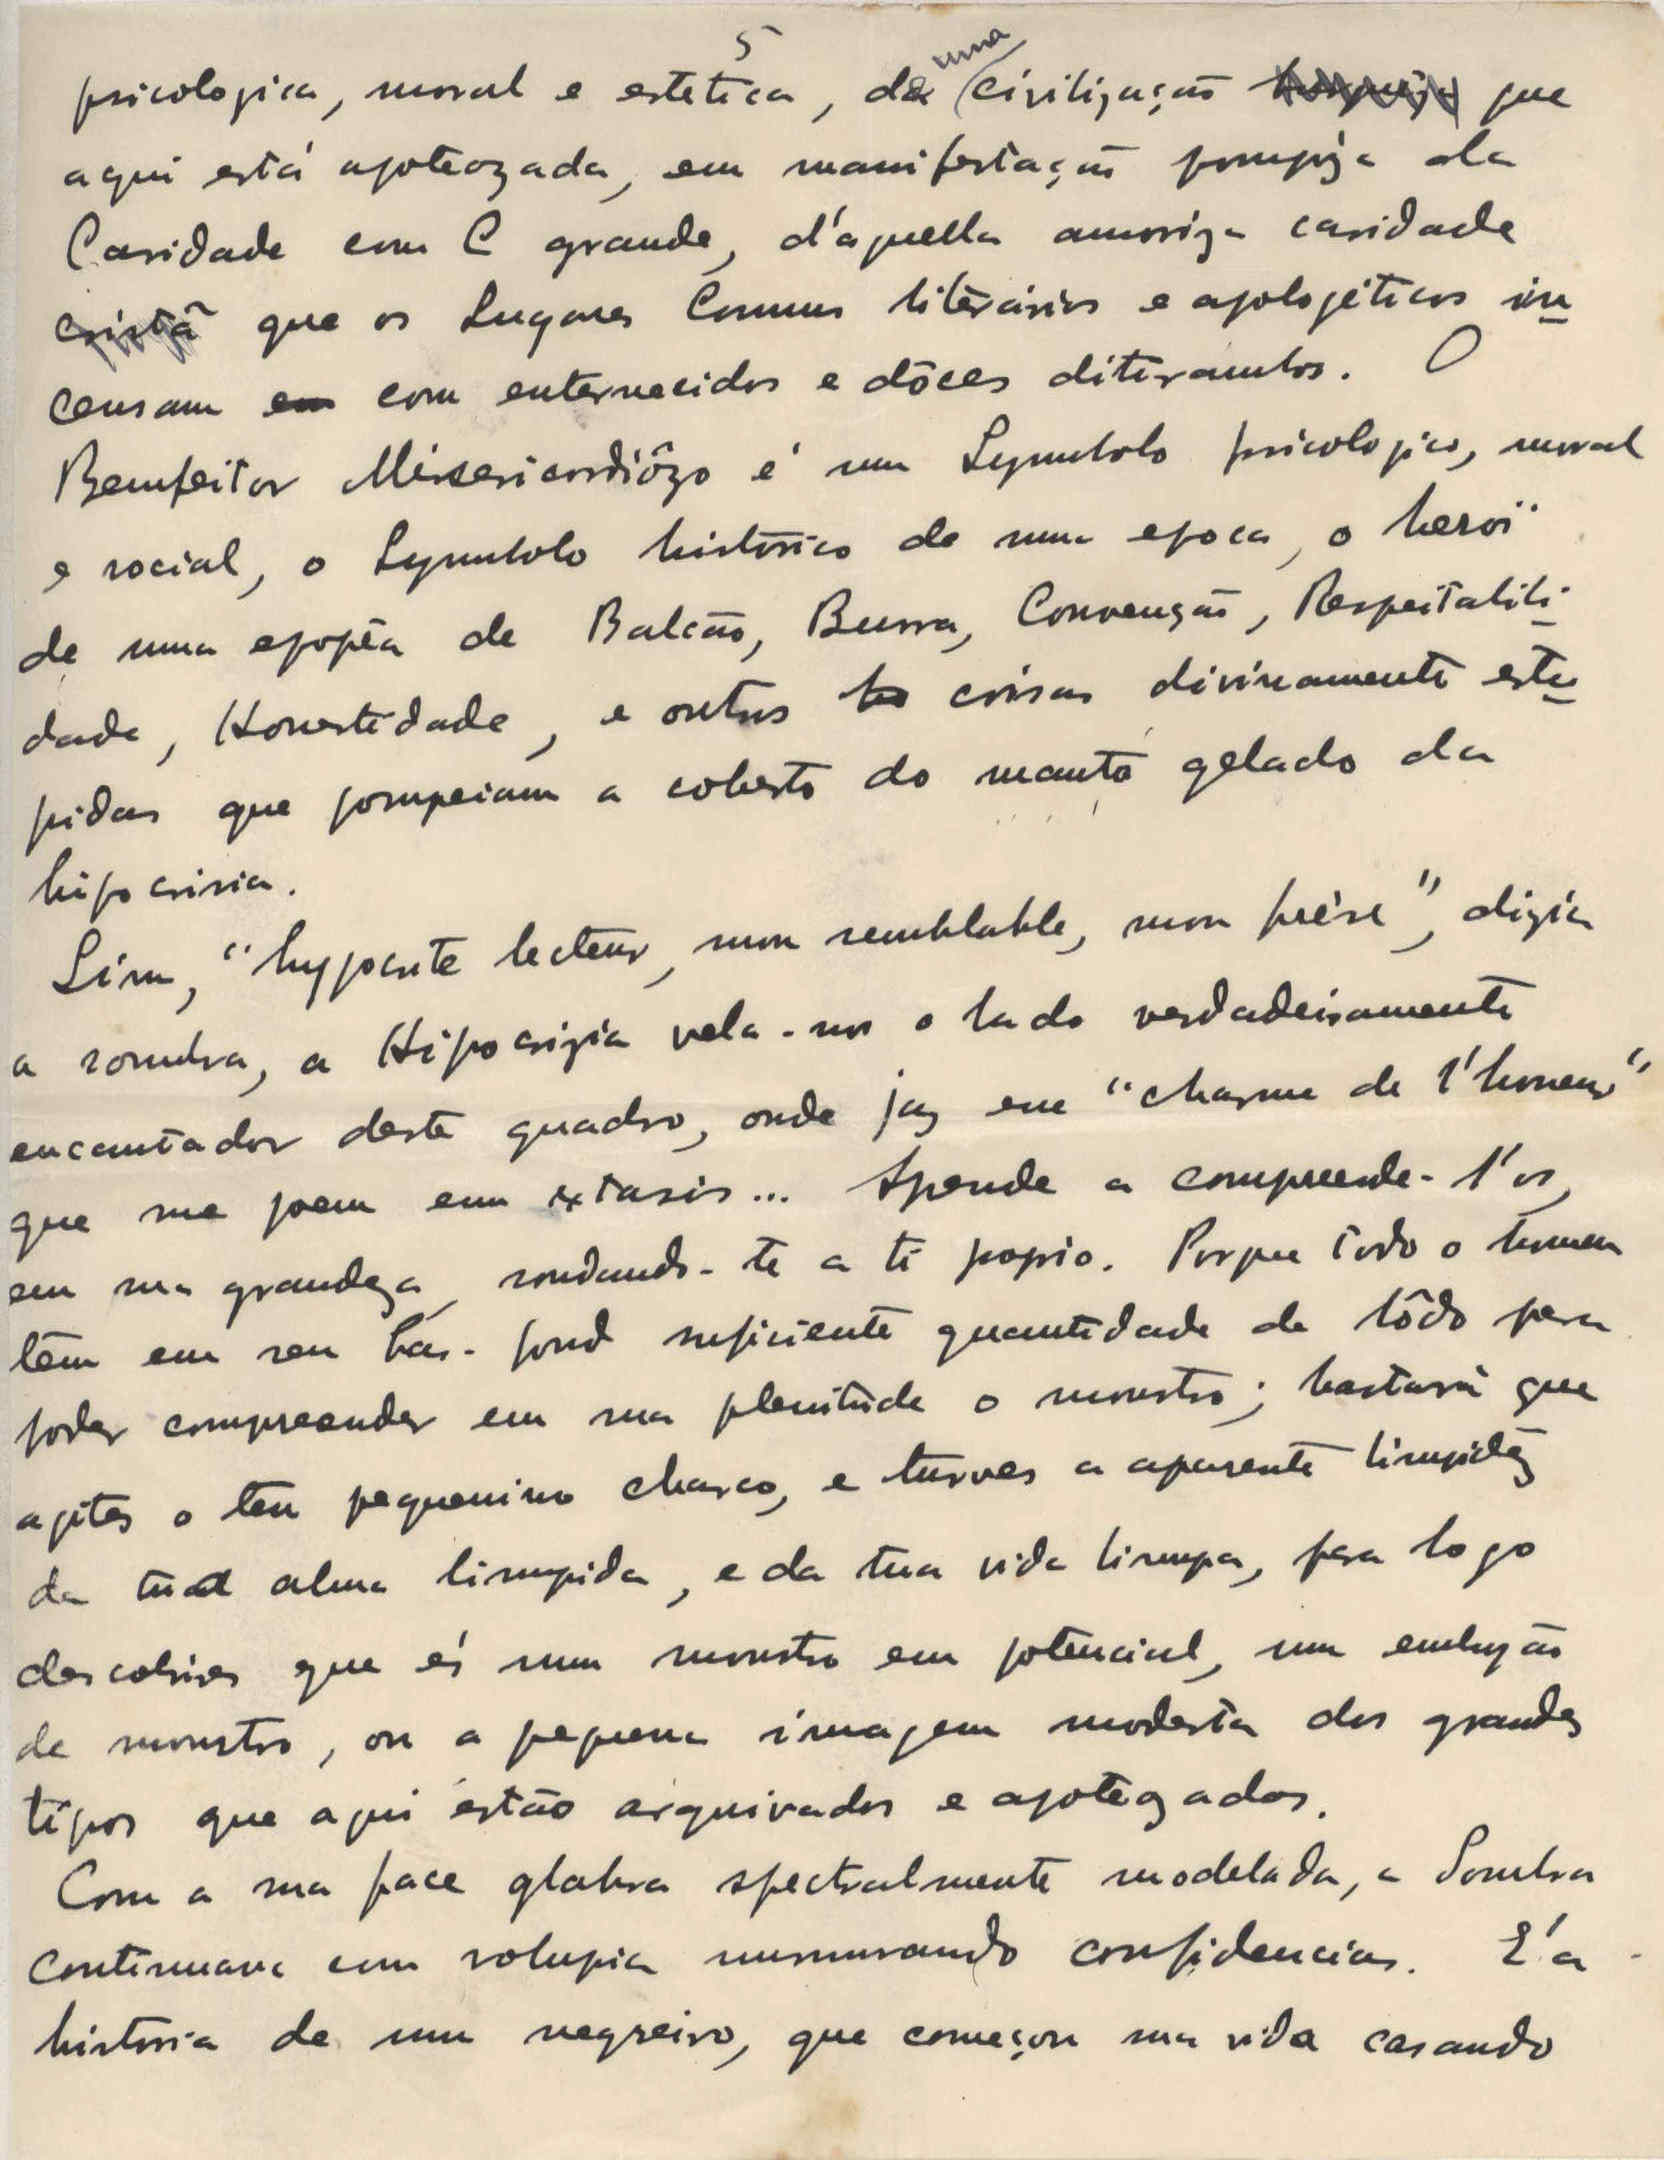 5
psicologica, moral e estetica, de uma civilização burgueza que
aqui está apoteozada, em manifestação pompoza da
Caridade com C grande, d'aquella amoroza caridade
cristã que os Lugares Comuns literários e apologéticos in-
censam em com enternecidos e dôces ditirambos. O
Bemfeitor Misericordiôzo é um Symbolo psicologico, moral
e social, o Symbolo histórico de uma epoca, o heroï
de uma epopêa de Balcão, Burra, Convenção, Respeitabili-
dade, Honestidade, e outras coisas divinamente estu-
pidas que pompeiam a coberto do manto gelado da
hipocrisia.
Sim, "hypocrite lecteur, mon semblable, mon frère", dizia
a sombra, a Hipocrizia vela-nos o lado verdadeiramente
encantador deste quadro, onde jaz em "charme de l'horreur"
que me poem em extasis... Aprende a compreende-l'os,
em sua grandeza, sondando-te a ti proprio. Porque todo o homem
têm em seu bas-fond suficiente quantidade de lôdo para
poder compreender em sua plenitude o monstro; bastará que
agites o teu pequenino charco, e turves a aparente limpidêz
da tua alma limpida, e da tua vida limpa, para logo
descobrires que és um monstro em potencial, um embryão
de monstro, ou a pequena imagem modesta dos grandes
tipos que aqui estão arquivados e apoteozados.
Com a sua face glabra spectralmente modelada, a Sombra
continuava com volupia murmurando confidencias. E'a
historia de um negreiro, que começou sua vida casando